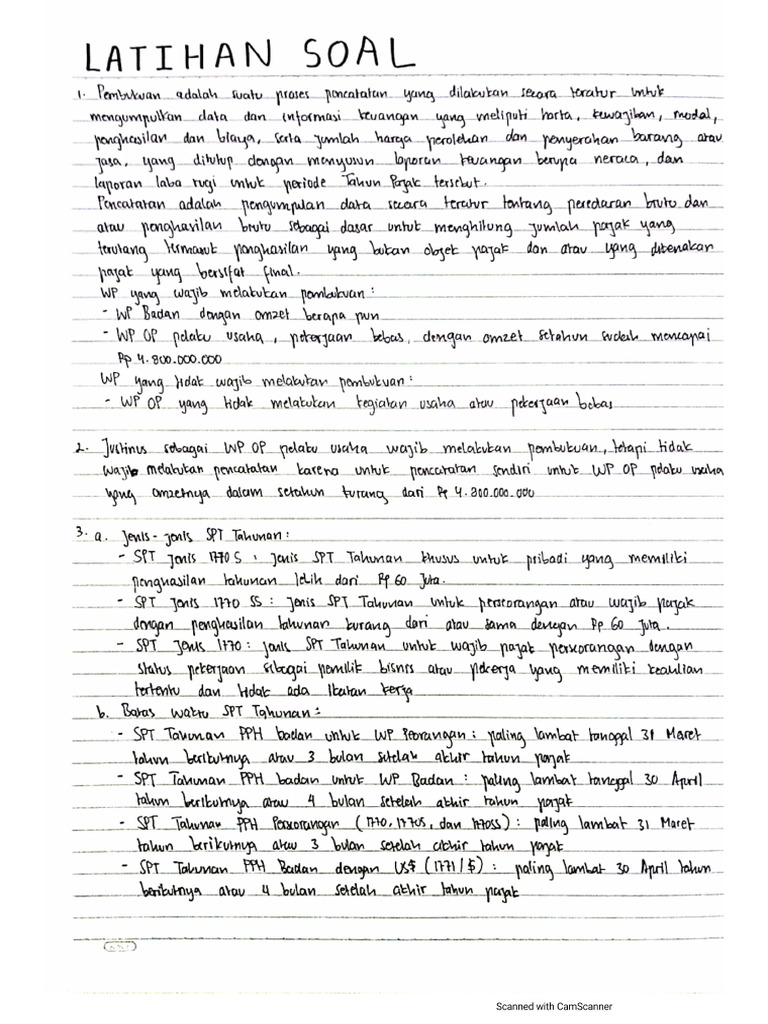 LATIHAN SOAL
1. Pembukuan adalah suatu proses pencatatan yang dilakukan secara teratur untuk
mengumpulkan data dan informasi keuangan yang meliputi harta, kewajiban, modal,
penghasilan dan biaya, serta jumlah harga perolehan dan penyerahan barang atau
jasa, yang ditutup dengan menyusun laporan keuangan berupa neraca, dan
laporan laba rugi untuk periode Tahun Pajak tersebut.
Pencatatan adalah pengumpulan data secara teratur tentang peredaran bruto dan
atau penghasilan bruto sebagai dasar untuk menghitung jumlah pajak yang
terutang termasuk penghasilan yang bukan objek pajak dan atau yang dikenakan
pajak yang bersifat final.
WP yang wajib melakukan pembukuan :
- WP Badan dengan omzet berapa pun
- WP OP pelaku usaha, pekerjaan bebas, dengan omzet setahun sudah mencapai
Rp 4.800.000.000
WP yang tidak wajib melakukan pembukuan :
- WP OP yang tidak melakukan kegiatan usaha atau pekerjaan bebas
2. Justinus sebagai WP OP pelaku usaha wajib melakukan pembukuan, tetapi tidak
wajib melakukan pencatatan karena untuk pencatatan sendiri untuk WP OP pelaku usaha
yang omzetnya dalam setahun kurang dari Rp 4.800.000.000
3. a. Jenis-jenis SPT Tahunan :
- SPT Jenis 1770 S : Jenis SPT Tahunan khusus untuk pribadi yang memiliki
penghasilan tahunan lebih dari Rp 60 Juta.
- SPT Jenis 1770 SS : Jenis SPT Tahunan untuk perseorangan atau wajib pajak
dengan penghasilan tahunan kurang dari atau sama dengan Rp 60 Juta.
- SPT Jenis 1770 : Jenis SPT Tahunan untuk wajib pajak perseorangan dengan
status pekerjaan sebagai pemilik bisnis atau pekerja yang memiliki keahlian
tertentu dan tidak ada ikatan kerja
b. Batas waktu SPT Tahunan :
- SPT Tahunan PPH badan untuk WP Perorangan : paling lambat tanggal 31 Maret
tahun berikutnya atau 3 bulan setelah akhir tahun pajak
- SPT Tahunan PPH badan untuk WP Badan : paling lambat tanggal 30 April
tahun berikutnya atau 4 bulan setelah akhir tahun pajak
- SPT Tahunan PPH Perseorangan (1770, 1770S, dan 1770SS) : paling lambat 31 Maret
tahun berikutnya atau 3 bulan setelah akhir tahun pajak
- SPT Tahunan PPH Badan dengan US$ (1771/$) : paling lambat 30 April tahun
berikutnya atau 4 bulan setelah akhir tahun pajak
Scanned with CamScanner